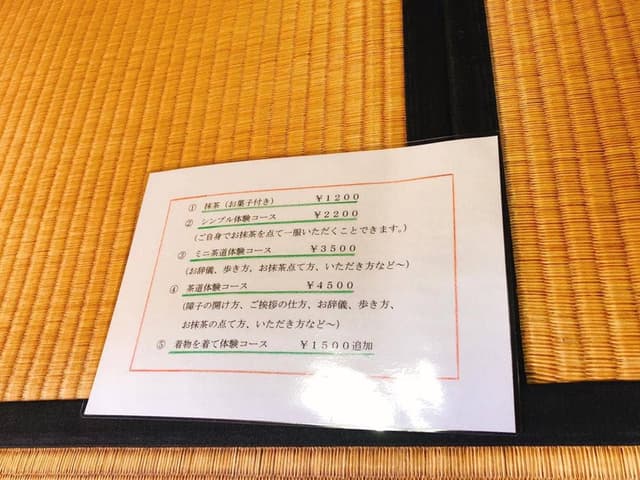 ① 抹茶（お菓子付き） ￥１２００
② シンプル体験コース ￥２２００
（ご自身でお抹茶を点て一服いただくことできます。）
③ ミニ茶道体験コース ￥３５００
（お辞儀、歩き方、お抹茶点て方、いただき方など～）
④ 茶道体験コース ￥４５００
（障子の開け方、ご挨拶の仕方、お辞儀、歩き方、
お抹茶の点て方、いただき方など～）
⑤ 着物を着て体験コース ￥１５００追加